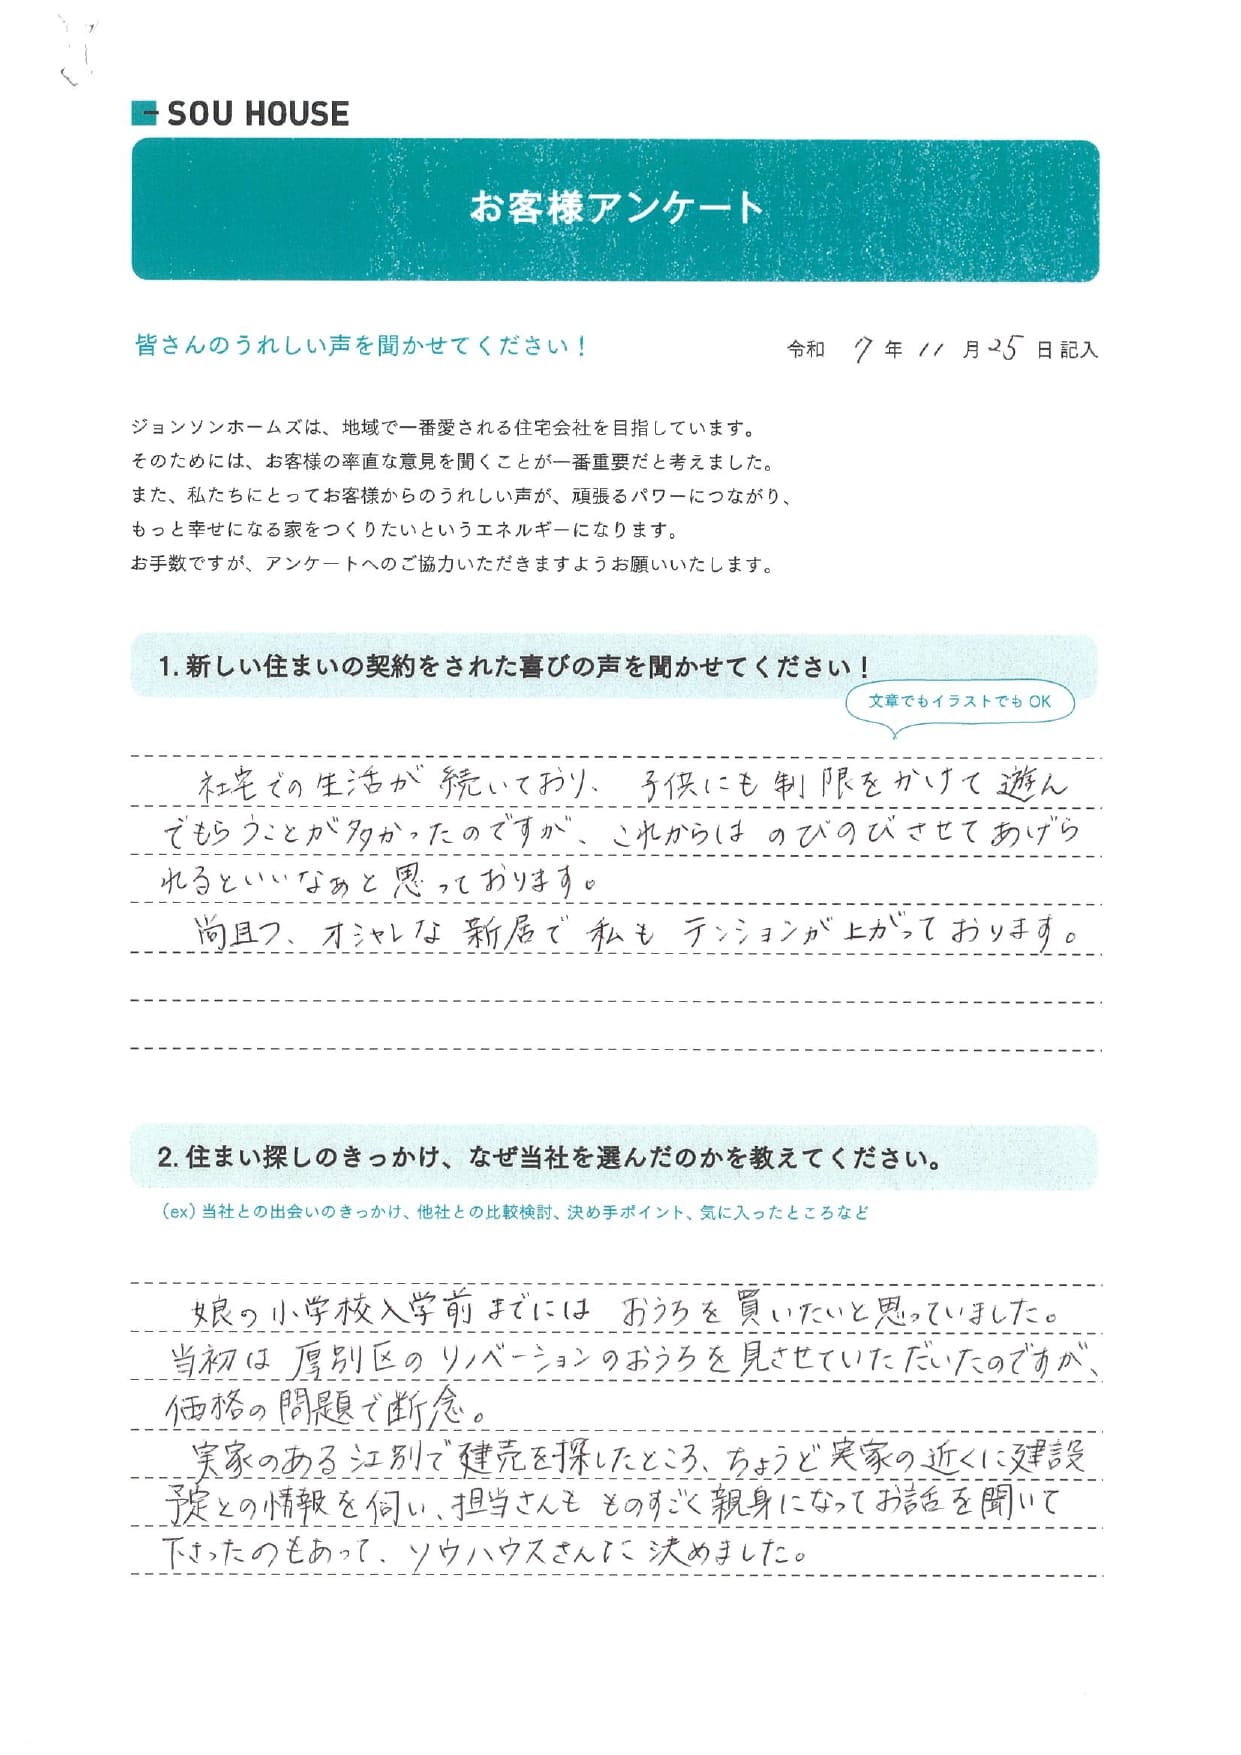 SOU HOUSE
お客様アンケート
皆さんのうれしい声を聞かせてください！
令和 7年 11月25日記入
ジョンソンホームズは、地域で一番愛される住宅会社を目指しています。
そのためには、お客様の率直な意見を聞くことが一番重要だと考えました。
また、私たちにとってお客様からのうれしい声が、頑張るパワーにつながり、
もっと幸せになる家をつくりたいというエネルギーになります。
お手数ですが、アンケートへのご協力いただきますようお願いいたします。
1. 新しい住まいの契約をされた喜びの声を聞かせてください！
文章でもイラストでも OK
社宅での生活が続いており、子供にも制限をかけて遊ん
でもらうことが多かったのですが、これからはのびのびさせてあげら
れるといいなぁと思っております。
尚且つ、オシャレな新居で私もテンションが上がっております。
2. 住まい探しのきっかけ、なぜ当社を選んだのかを教えてください。
（ex）当社との出会いのきっかけ、他社との比較検討、決め手ポイント、気に入ったところなど
娘の小学校入学前までにはおうちを買いたいと思っていました。
当初は厚別区のリノベーションのおうちを見させていただいたのですが、
価格の問題で断念。
実家のある江別で建売を探したところ、ちょうど実家の近くに建設
予定との情報を伺い、担当さんもものすごく親身になってお話を聞いて
下さったのもあって、ソウハウスさんに決めました。